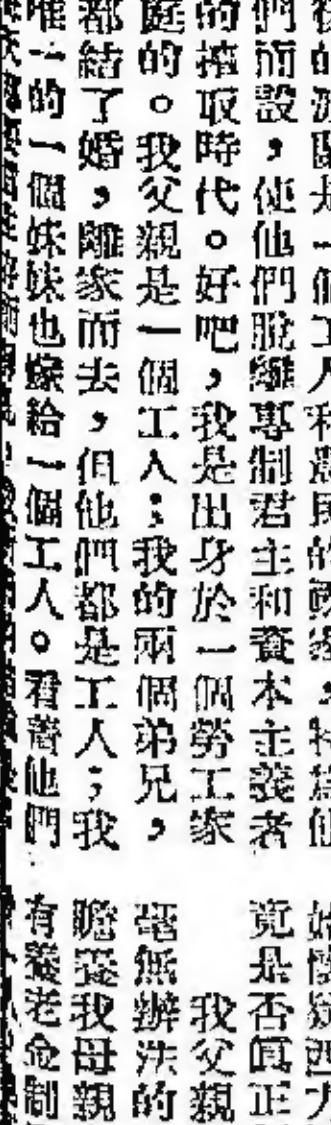 是一個工人和農民的國家,特為他
們而設,使他們脫離專制君主和資本主義者
的搾取時代。好吧,我是出身於一個勞工家
庭的。我父親是一個工人;我的兩個弟兄,
都結了婚,離家而去,但他們都是工人;我
唯一的一個妹妹也嫁給一個工人。看着他們
始懷疑西方
竟是否眞正
我父親
毫無辦法的
贍養我母親
有養老金制